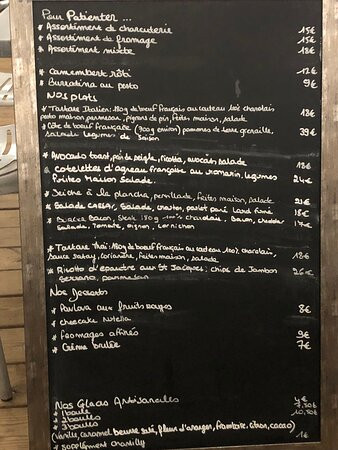 Pour Patienter ...
* Assortiment de charcuterie 15€
* Assortiment de fromage 15€
* Assortiment mixte 18€
* Camembert rôti 12€
* Burratina au pesto 9€
Nos plats
* Tartare Italien: 180g de bœuf français au couteau 100% charolais
pesto maison parmesan, pignons de pin, frites maison, salade 18€
* Côte de bœuf française (300g environ) pommes de terre grenaille,
salade legumes de saison 39€
* Avocado toast, pain de seigle, ricotta, avocats salade 18€
* cotelettes d'agneau française au romarin, legumes
frites Maison Salade. 24€
* Seiche à la plancha, persillade, frites maison, salade 21€
* Salade CAESAR, Salade, croûton, poulet pané, lard fumé 18€
* Bacon, Steak 180g 100% charolais, Bacon, cheddar
Salade, Tomate, oignon, cornichon 17€
* Tartare Thaï: 180g de bœuf français au couteau 100% charolais,
sauce satay, coriandre, frites maison, salade 18€
* Risotto d'épeautre aux St Jacques: chips de Jambon
serrano, parmesan 26€
Nos Desserts
* Pavlova aux fruits rouges 8€
* cheecake Nutella
* fromages affinés 9€
* Crème brulée 7€
Nos Glaces Artisanales
* 1 boule 4€
* 2 boules 7,50€
* 3 boules 10,50€
(Vanille, caramel beurre salé, fleur d'oranger, framboise, citron, cacao)
* supplément chantilly 1€